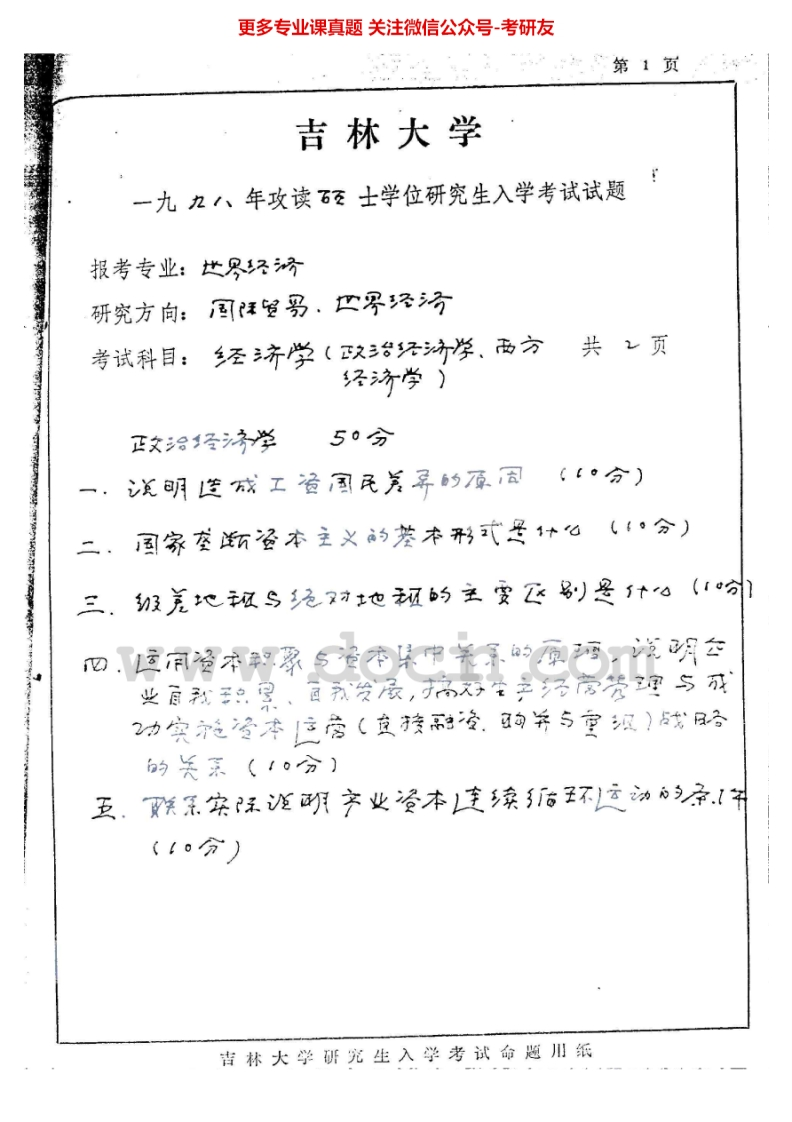 更多专业课真题 关注微信公众号-考研友
第 1 页
吉林大学
一九九八年攻读硕士学位研究生入学考试试题
报考专业: 世界经济
研究方向: 国际贸易. 世界经济
考试科目: 经济学(政治经济学、西方 共 2 页
经济学)
政治经济学 50分
一. 说明造成工资国民差异的原因 (10分)
二. 国家垄断资本主义的基本形式是什么 (10分)
三. 级差地租与绝对地租的主要区别是什么 (10分)
四. 运用资本积聚与资本集中关系的原理, 说明企
业自我积累、自我发展, 搞好生产经营管理与成
功实施资本运营(直接融资、购并与重组)战略
的关系 (10分)
五. 联系实际说明产业资本连续循环运动的条件
(10分)
www.docin.com
吉林大学研究生入学考试命题用纸